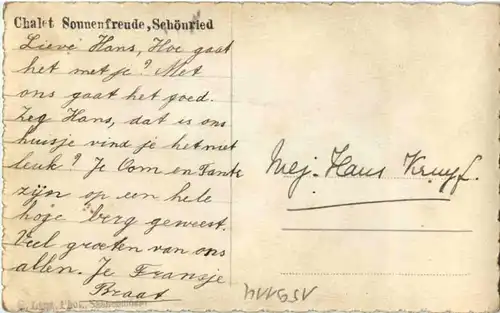 Chalet Sonnenfreude, Schönried
Lieve Hans, Hoe gaat
het met je? Met
ons gaat het goed.
Zeg Hans, dat is ons
huisje vind je het niet
leuk? Je Oom en Tante
zijn op een hele
hoje berg geweest.
Veel groeten van ons
allen. Je Fransje
Braat
Mej. Hans Kruyf.